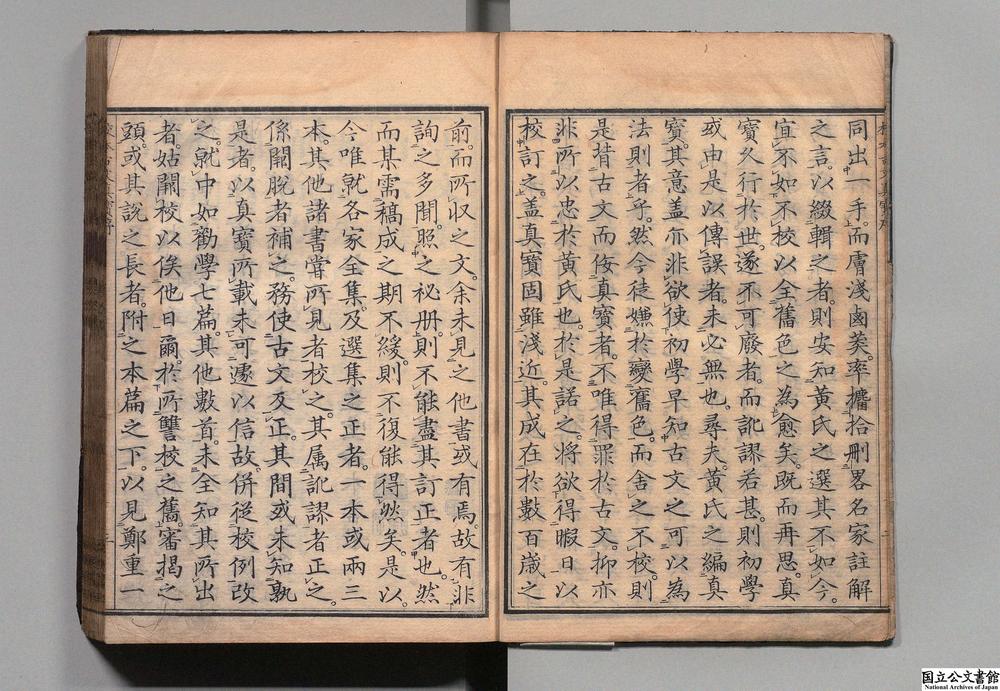 同出一手而膚淺鹵莽率攟拾刪畧名家註解
之言以綴輯之者則安知黃氏之選其不如今
宜不如不校以全舊色之為愈矣既而再思真
寶久行於世遂不可廢者而訛謬若甚則初學
或由是以傳誤者未必無也尋夫黃氏之編真
寶其意盖亦非欲使初學早知古文之可以為
法則者乎然今徒嫌於變舊色而舍之不校則
是昔古文而侫真寶者不唯得罪於古文抑亦
非所以忠於黃氏也於是諾之將欲得暇日以
校訂之盖真寶固雖淺近其成在於數百歲之
前而所収之文余未見之他書或有焉故有非
詢之多聞照之祕册則不能盡其訂正者也然
而某需稿成之期不緩則不復能得然矣是以
今唯就各家全集及選集之正者一本或兩三
本其他諸書嘗所見者校之其属訛謬者正之
係闕脫者補之務使古文反正其間或未知孰
是者以真寶所載未可遽以信故併從校例改
之就中如勸學七篇其他數首未全知其所出
者姑闕校以俟他日爾於所讐校之舊審揭之
頭或其說之長者附之本篇之下以見鄭重一
国立公文書館
National Archives of Japan